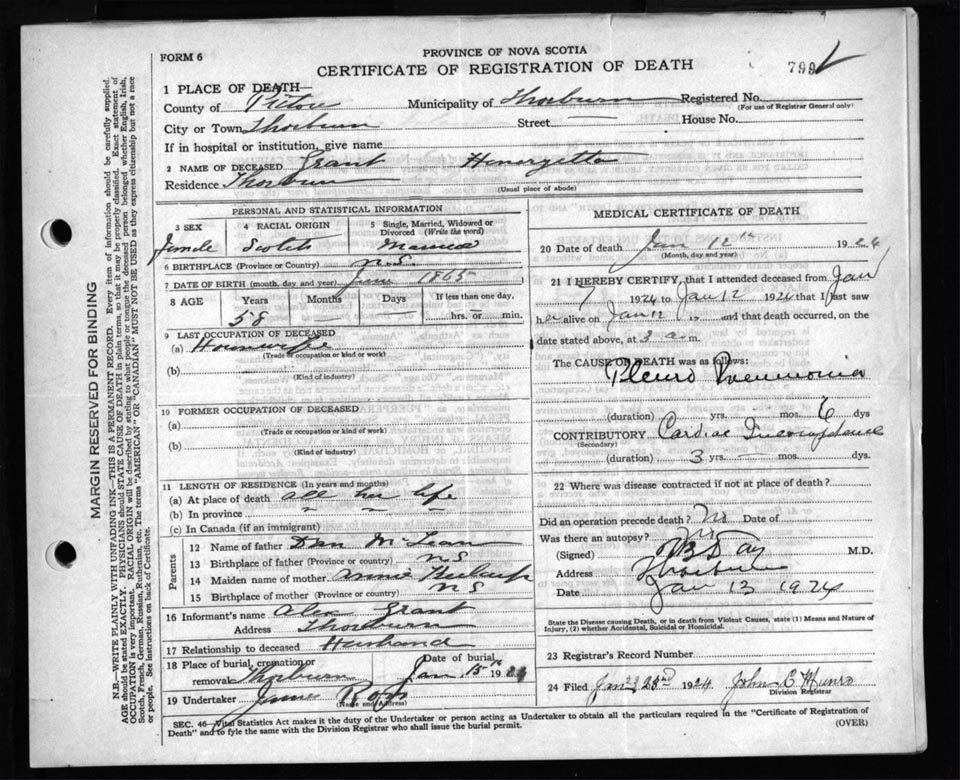 FORM 6
PROVINCE OF NOVA SCOTIA
CERTIFICATE OF REGISTRATION OF DEATH
799
1 PLACE OF DEATH—
County of Pictou Municipality of Thorburn Registered No.
(For use of Registrar General only)
City or Town Thorburn Street — House No.
If in hospital or institution, give name
2 NAME OF DECEASED Grant Henargetta
Residence Thorburn
(Usual place of abode)
PERSONAL AND STATISTICAL INFORMATION
3 SEX 4 RACIAL ORIGIN 5 Single, Married, Widowed or Divorced (Write the word)
Female Scotch Married
6 BIRTHPLACE (Province or Country) N.S.
7 DATE OF BIRTH (month, day, and year) June 1865
8 AGE Years Months Days If less than one day,
58 — — hrs. or min.
9 LAST OCCUPATION OF DECEASED
(a) Housewife
(Trade or occupation or kind or work)
(b)
(Kind of industry)
10 FORMER OCCUPATION OF DECEASED
(a)
(Trade or occupation or kind of work)
(b)
(Kind of industry)
11 LENGTH OF RESIDENCE (In years and months)
(a) At place of death all her life
(b) In province " " "
(c) In Canada (if an immigrant)
Parents
12 Name of father Dan McLean
13 Birthplace of father (Province or country) N.S
14 Maiden name of mother Annie
15 Birthplace of mother (Province or country) N S
16 Informant's name Alex Grant
Address Thorburn
17 Relationship to deceased Husband
18 Place of burial, cremation or removal Thorburn Date of burial Jan. 15th 1924
19 Undertaker James Ross
(Name and Address)
MEDICAL CERTIFICATE OF DEATH
20 Date of death Jan 12th 1924
(Month, day and year)
21 I HEREBY CERTIFY, that I attended deceased from Jan
1924 to Jan 12 1924 that I last saw
her alive on Jan 12 19 and that death occurred, on
date stated above, at 3 a.m.
The CAUSE OF DEATH was as follows:
Pleuro Pneumonia
(duration) yrs. — mos. 6 dys
CONTRIBUTORY Cardiac
(Secondary)
(duration) 3 yrs. — mos. dys.
22 Where was disease contracted if not at place of death?
Did an operation precede death? No Date of
Was there an autopsy? No
(Signed) Day M.D.
Address Thorburn
Date Jan 13 1924
State the Disease causing Death, or in death from Violent Causes, state (1) Means and Nature of
Injury, (2) whether Accidental, Suicidal or Homicidal.
23 Registrar's Record Number
24 Filed Jan 23rd 1924 John E Munro
Division Registrar
SEC. 46—Vital Statistics Act makes it the duty of the Undertaker or person acting as Undertaker to obtain all the particulars required in the "Certificate of Registration of
Death" and to fyle the same with the Division Registrar who shall issue the burial permit. (OVER)
MARGIN RESERVED FOR BINDING
N.B.—WRITE PLAINLY WITH UNFADING INK—THIS IS A PERMANENT RECORD. Every item of information should be carefully supplied.
AGE should be stated EXACTLY. PHYSICIANS should STATE CAUSE OF DEATH in plain terms, so that it may be properly classified. Exact statement of
OCCUPATION is very important. RACIAL ORIGIN will be described by stating to what people or tongue the deceased person belonged whether English, Irish,
Scotch, French, German, Russian, Ruthenian, etc. The terms "AMERICAN" or "CANADIAN" MUST NOT BE USED as they express citizenship but not a race
or people. See instructions on back of Certificate.